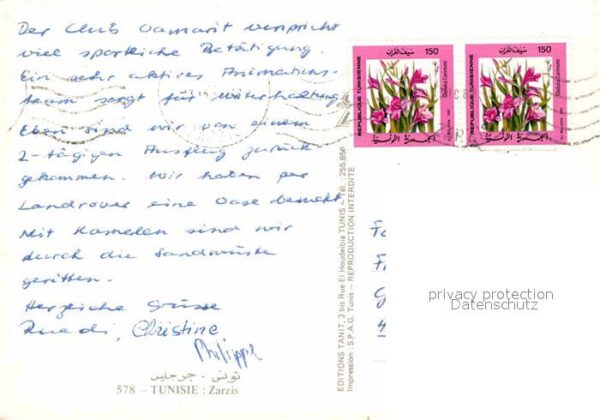 Der Club Oamarit verspricht
viel sportliche Betätigung.
Ein sehr aktives Animations-
team sorgt für Unterhaltung.
Eben sind wir von einem
2-tägigen Ausflug zurück-
gekommen. Wir haben per
Landrover eine Oase besucht
Mit Kamelen sind wir
durch die Sandwüste
geritten.
Herzliche Grüsse
Ruedi, Christine
Philippe
تونس - جرجيس
578 – TUNISIE : Zarzis
EDITIONS TANIT, 3 bis Rue El Houdeibia TUNIS - Tél. : 255.856
Impression : S.P.A.G. Tunis – REPRODUCTION INTERDITE
150
سيف الغراب
REPUBLIQUE TUNISIENNE
الجمهورية التونسية
150
سيف الغراب
REPUBLIQUE TUNISIENNE
الجمهورية التونسية
privacy protection
Datenschutz